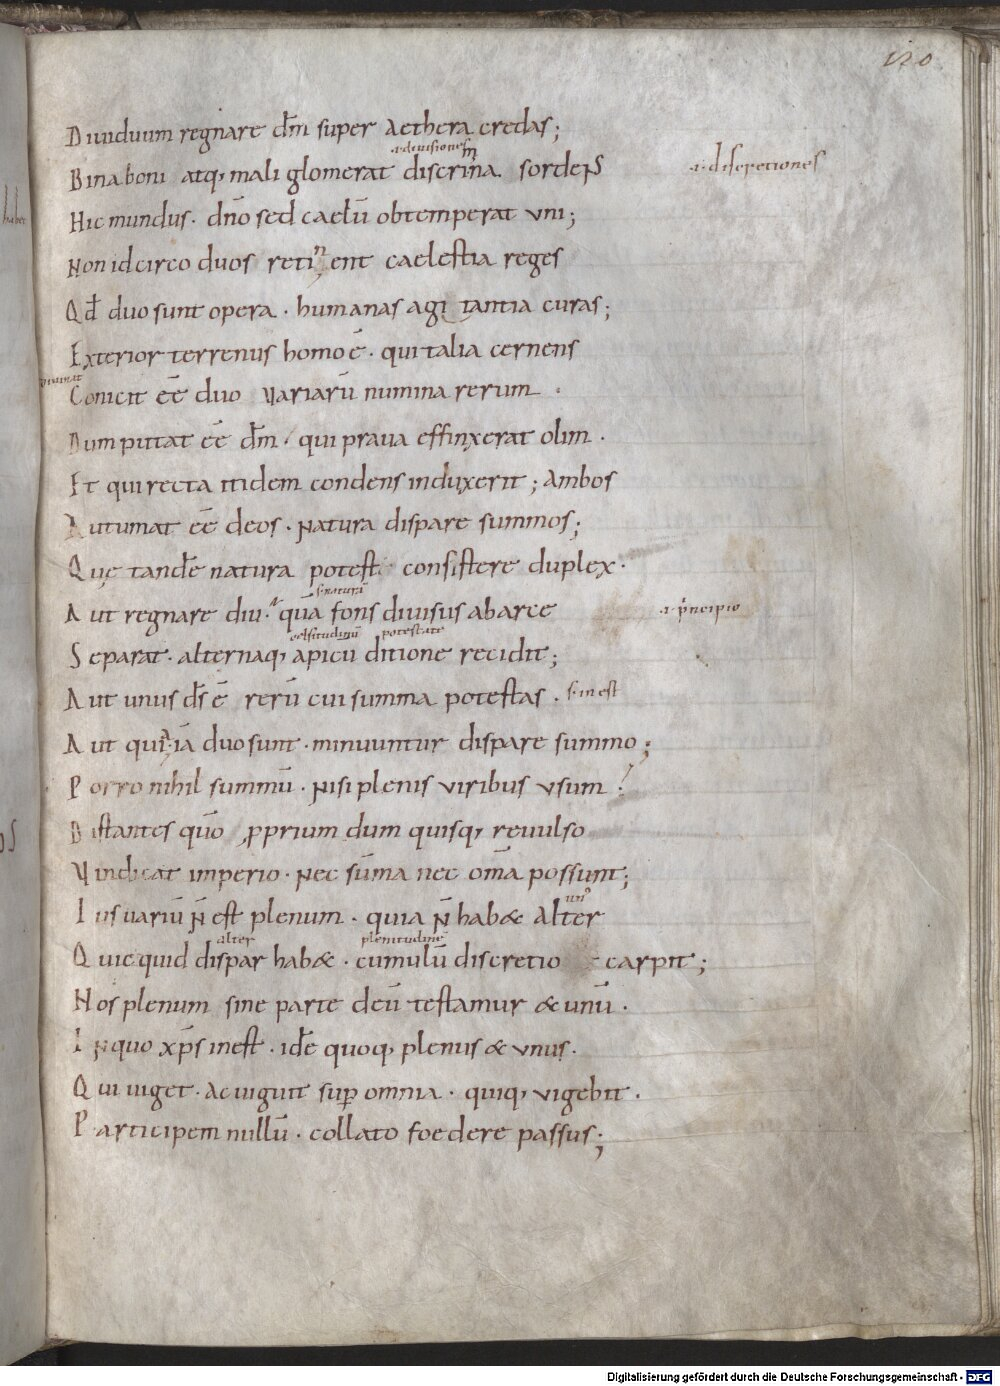 120
Diuiduum regnare dm̄ super Aethera credas;
.i. diuisiones
Bina boni atq; mali glomerat discrim̄a sordens
.i. discretiones
Hic mundus · dn̄o sed caelū obtemperat vni;
Non idcirco duos retinent caelestia reges
Qd̄ duo sunt opera · humanas agitantia curas;
Exterior terrenus homo ē · qui talia cernens
diuinat
Conicit eē duo variarū numina rerum ·
Dum putat eē dm̄ · qui praua effinxerat olim ·
Et qui recta itidem condens induxerit; Ambos
Autumat eē deos · Natura dispare summos;
Quę tandē natura potest consistere duplex ·
s. natura
Aut regnare diu · quā fons diuisus ab arce
.i. principio
celsitudinū potestate
Separat · alternaq; apicū ditione recidit;
Aut unus ds̄ ē rerū cui summa potestas · s. inest
Aut quia iā duo sunt · minuuntur dispare summo;
Porro nihil summū · Nisi plenis viribus vsum
Distantes quō ꝓprium dum quisq; reuulso
Vindicat imperio · Nec sūma nec om̄a possunt;
Ius uariū n̄ est plenum · quia n̄ hab& alter
alter plenitudinē
Quicquid dispar hab& · cumulū discretio carpit;
Nos plenum sine parte deū testamur & unū ·
In quo xp̄s inest · idē quoq; plenus & vnus ·
Qui uiget · ac uiguit suꝑ omnia · quiq; vigebit ·
Participem nullū · collato foedere passus;
Digitalisierung gefördert durch die Deutsche Forschungsgemeinschaft - DFG